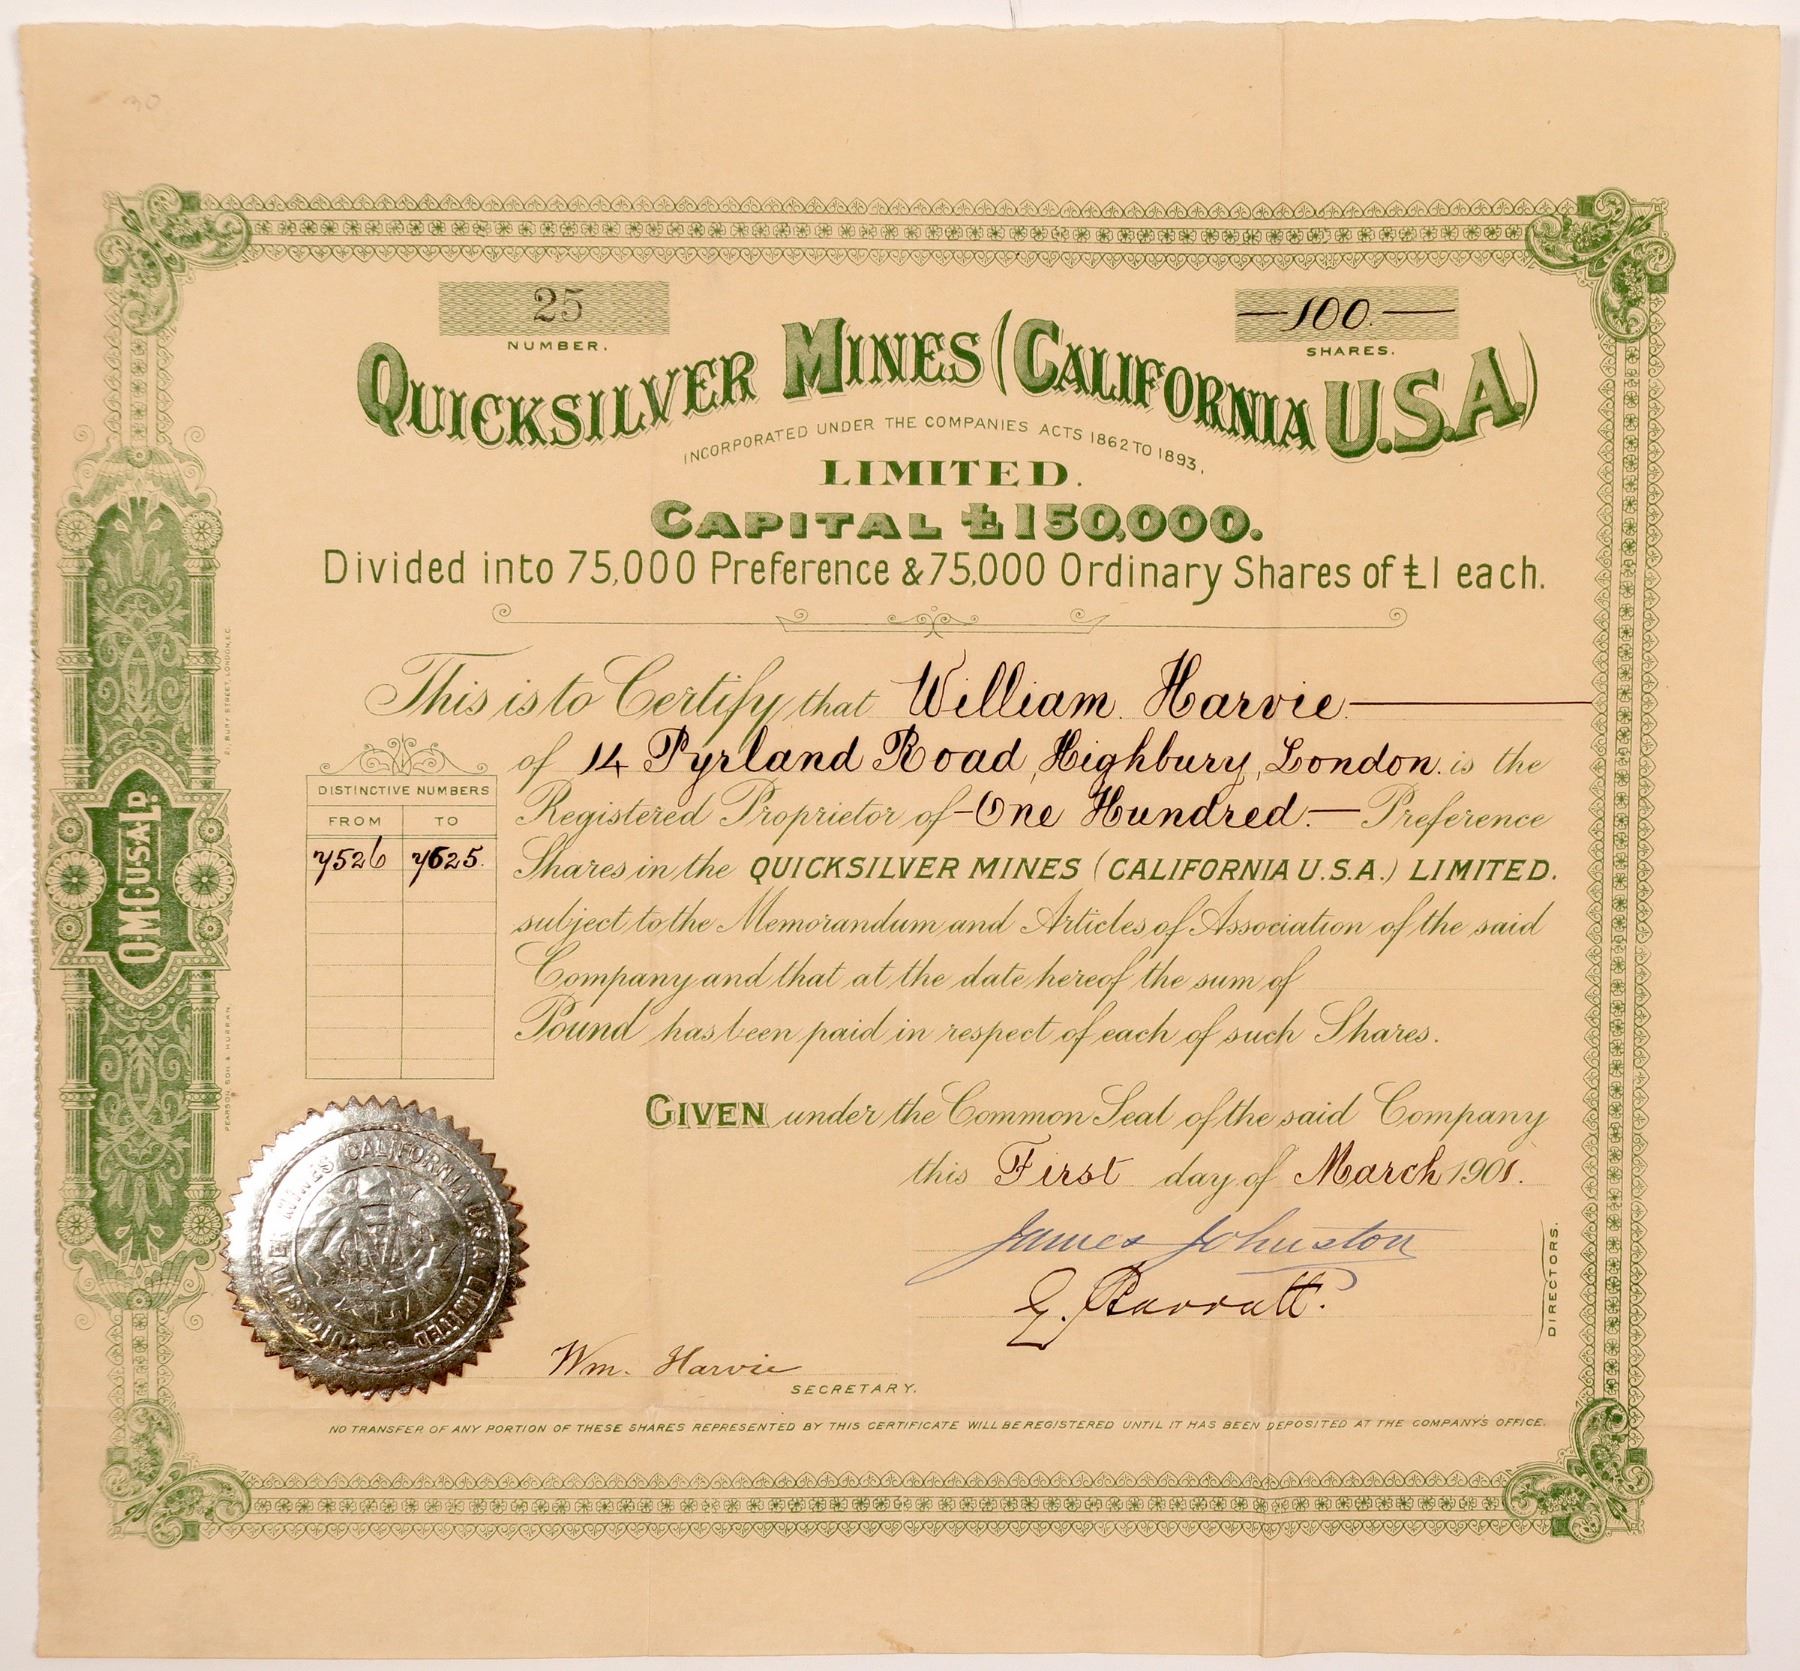 30
25
NUMBER.
—100.—
SHARES.
QUICKSILVER MINES (CALIFORNIA U.S.A.)
INCORPORATED UNDER THE COMPANIES ACTS 1862 TO 1893.
LIMITED.
CAPITAL £150,000.
Divided into 75,000 Preference & 75,000 Ordinary Shares of £1 each.
This is to Certify that William Harvie
of 14 Pyrland Road, Highbury, London. is the
Registered Proprietor of —One Hundred.— Preference
Shares in the QUICKSILVER MINES (CALIFORNIA U.S.A.) LIMITED.
subject to the Memorandum and Articles of Association of the said
Company and that at the date hereof the sum of
Pound has been paid in respect of each of such Shares.
DISTINCTIVE NUMBERS
FROM TO
7526 7625.
GIVEN under the Common Seal of the said Company
this First day of March 1901.
James Johnston
DIRECTORS.
Wm. Harvie
SECRETARY.
NO TRANSFER OF ANY PORTION OF THESE SHARES REPRESENTED BY THIS CERTIFICATE WILL BE REGISTERED UNTIL IT HAS BEEN DEPOSITED AT THE COMPANY'S OFFICE.
Q.M.C.USA.LD.
PEARSON SON & HURRAN 21, BURY STREET, LONDON, E.C.
QUICKSILVER MINES CALIFORNIA U.S.A. LIMITED